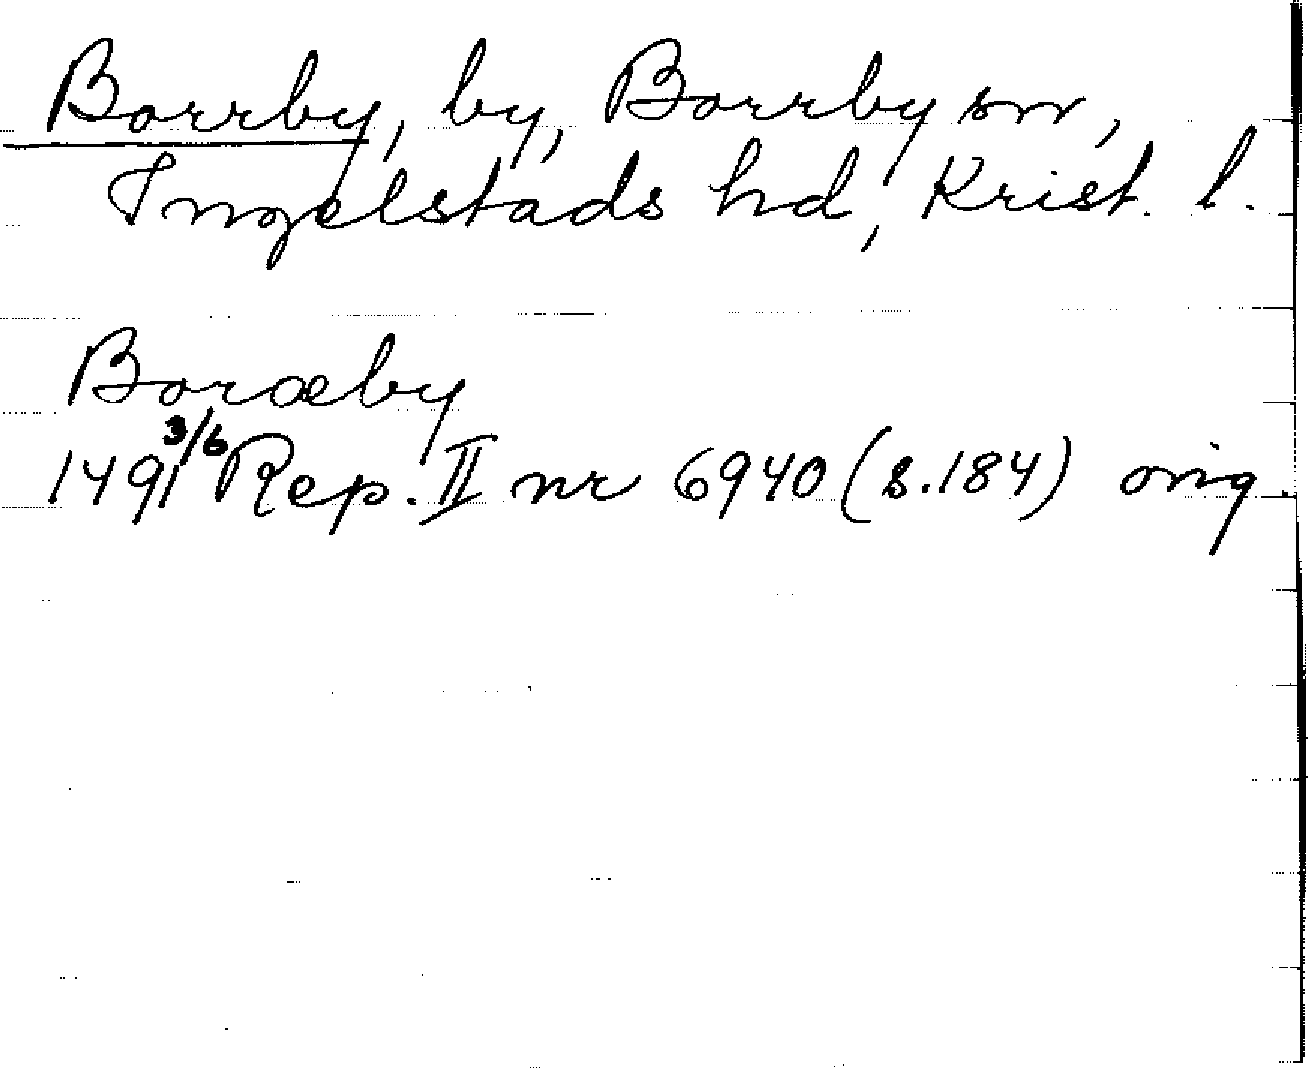 Borrby, by, Borrby sn,
Ingelstads hd, Krist. l.
Boræby
1491 3/6 Rep. II nr 6940 (s. 184) orig.